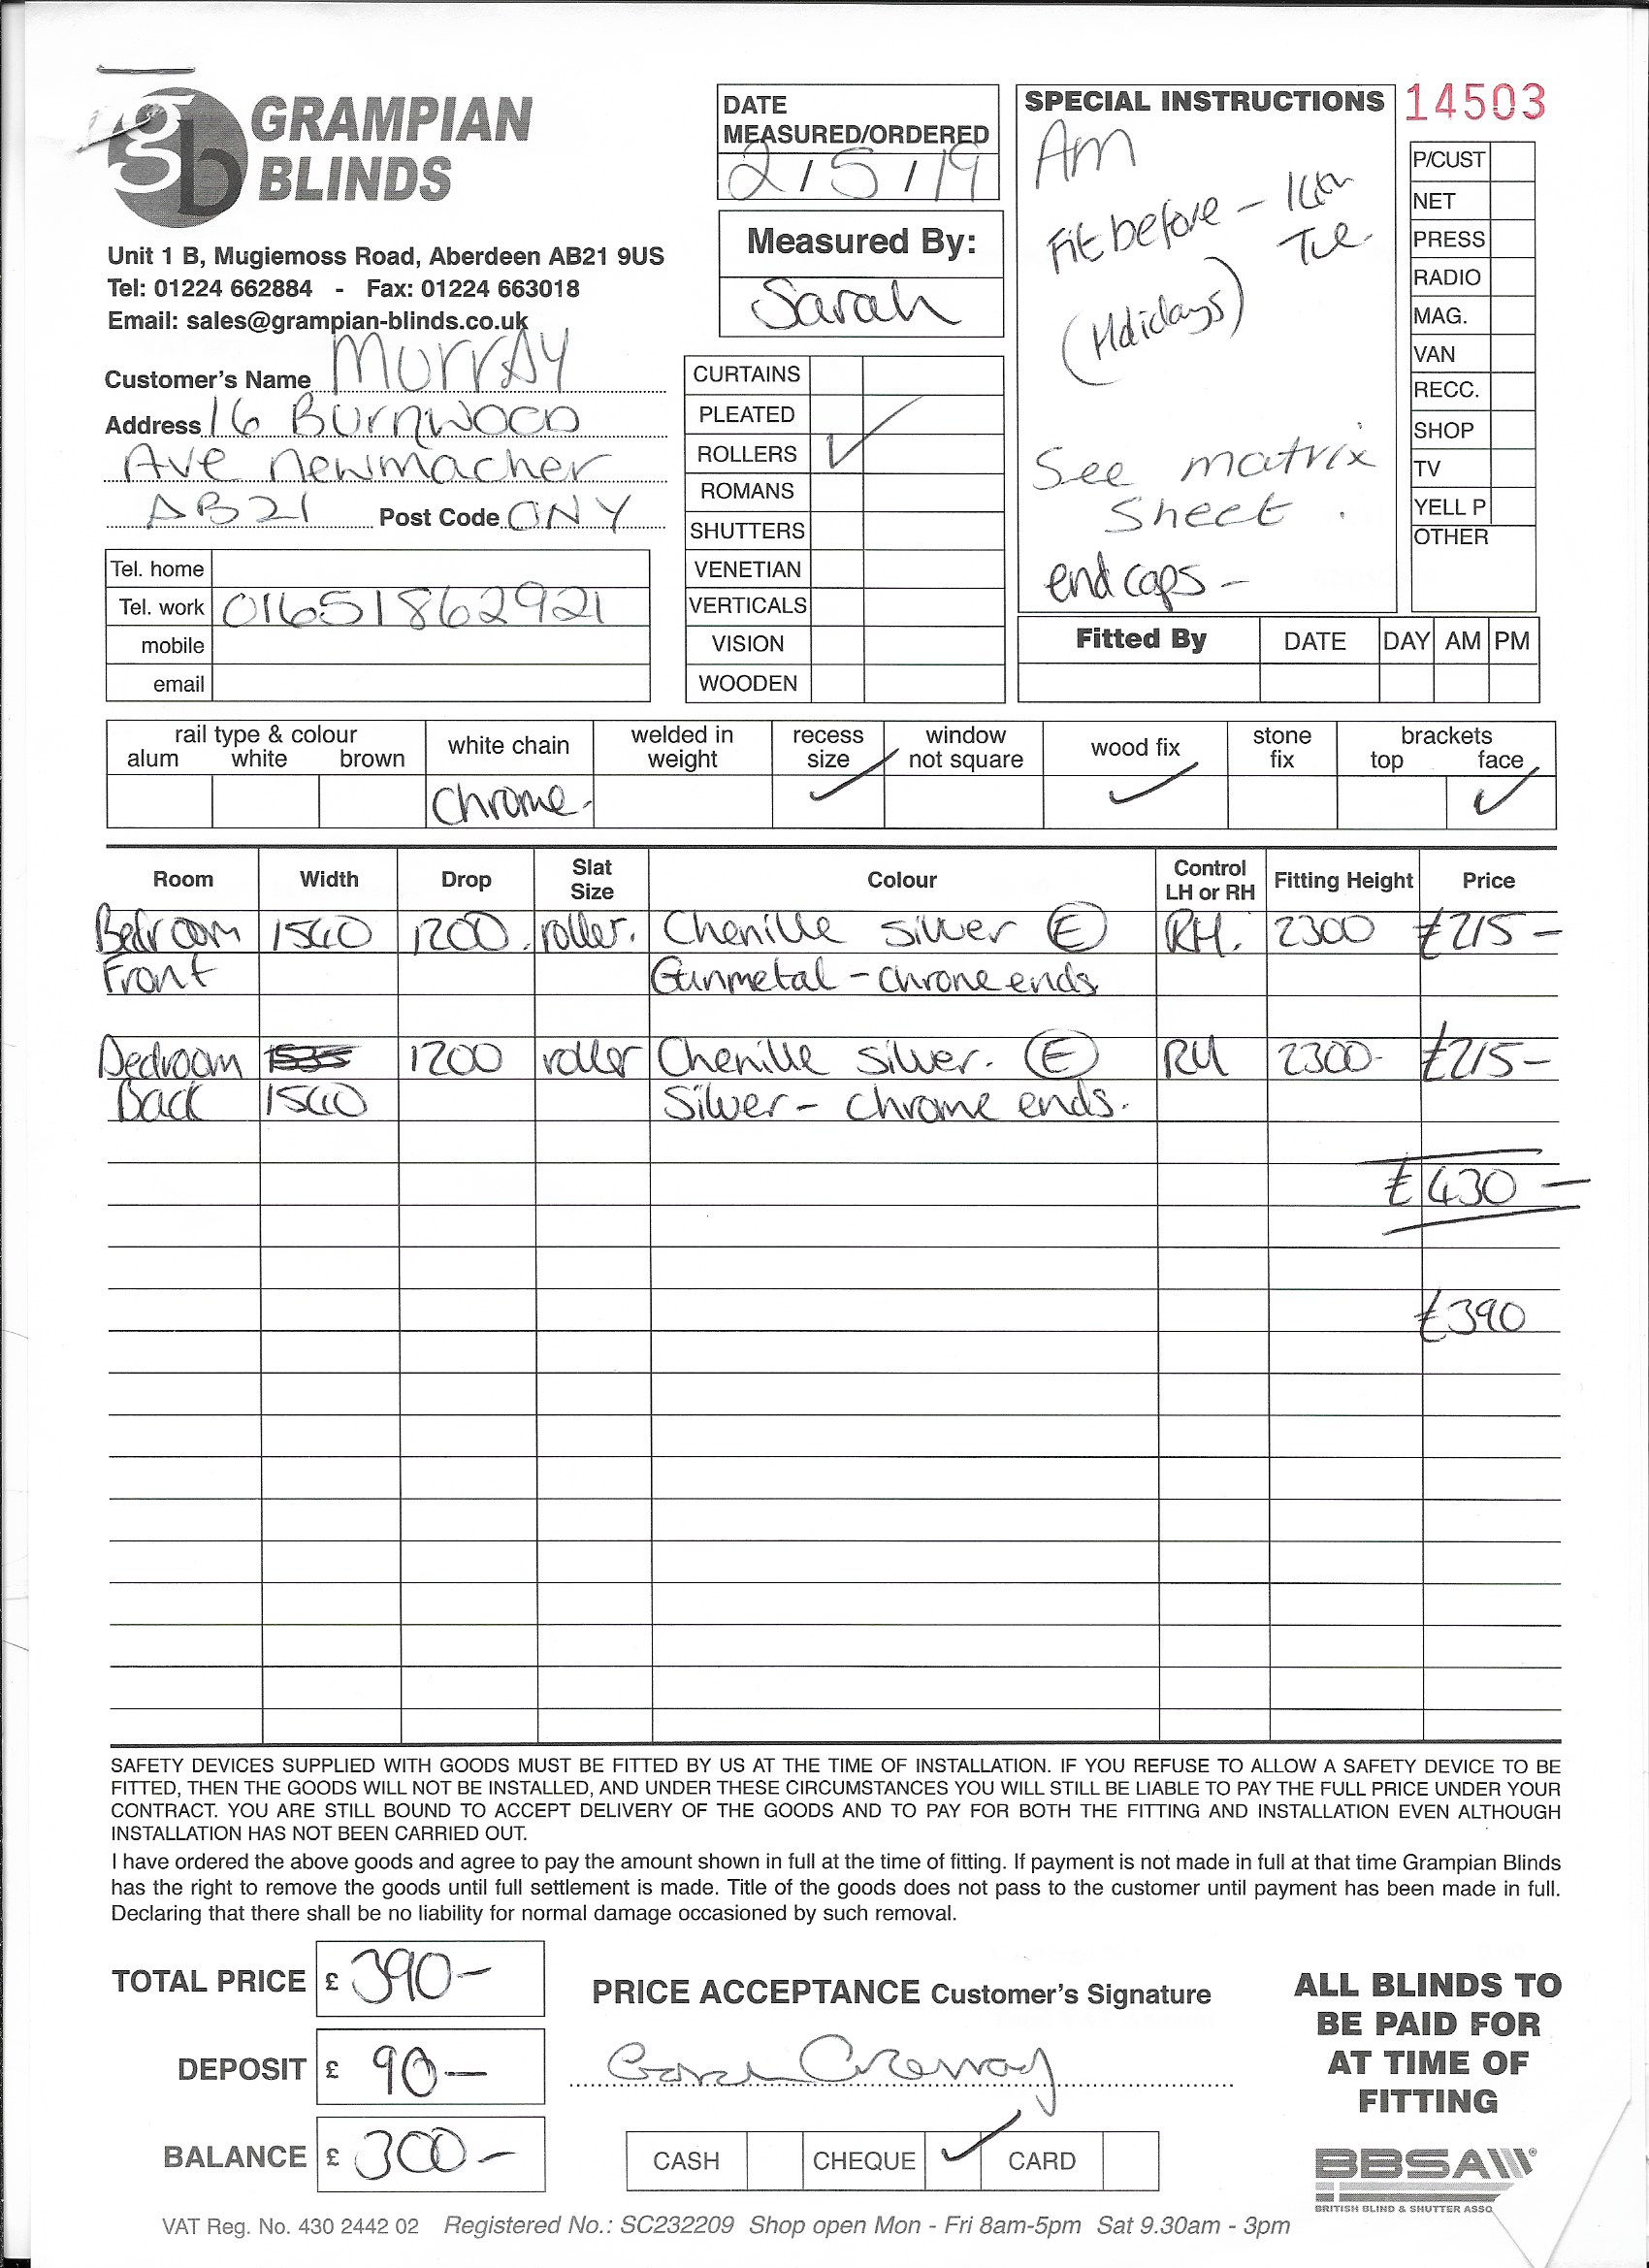 gb GRAMPIAN BLINDS
Unit 1 B, Mugiemoss Road, Aberdeen AB21 9US
Tel: 01224 662884 - Fax: 01224 663018
Email: sales@grampian-blinds.co.uk
Customer's Name MURRAY
Address 16 BURNWOOD
Ave Newmacher
AB21 Post Code ONY
Tel. home
Tel. work 01651862921
mobile
email
DATE
MEASURED/ORDERED
2/5/19
Measured By:
Sarah
CURTAINS
PLEATED
ROLLERS ✓
ROMANS
SHUTTERS
VENETIAN
VERTICALS
VISION
WOODEN
SPECIAL INSTRUCTIONS
Am
Fit before - 16th
Tue.
(Holidays)
See matrix
Sheet.
end caps -
14503
P/CUST
NET
PRESS
RADIO
MAG.
VAN
RECC.
SHOP
TV
YELL P
OTHER
Fitted By DATE DAY AM PM
rail type & colour
alum white brown
white chain
chrome.
welded in weight
recess size ✓
window not square
wood fix ✓
stone fix
brackets
top face ✓
Room Width Drop Slat Size Colour Control LH or RH Fitting Height Price
Bedroom 1540 1200. roller. Chenille silver (E) RH. 2300 £215 -
Front Gunmetal - chrome ends
Bedroom 1200 roller Chenille silver. (E) RH 2300- £215-
Back 1540 Silver - chrome ends.
£430 -
£390
SAFETY DEVICES SUPPLIED WITH GOODS MUST BE FITTED BY US AT THE TIME OF INSTALLATION. IF YOU REFUSE TO ALLOW A SAFETY DEVICE TO BE
FITTED, THEN THE GOODS WILL NOT BE INSTALLED, AND UNDER THESE CIRCUMSTANCES YOU WILL STILL BE LIABLE TO PAY THE FULL PRICE UNDER YOUR
CONTRACT. YOU ARE STILL BOUND TO ACCEPT DELIVERY OF THE GOODS AND TO PAY FOR BOTH THE FITTING AND INSTALLATION EVEN ALTHOUGH
INSTALLATION HAS NOT BEEN CARRIED OUT.
I have ordered the above goods and agree to pay the amount shown in full at the time of fitting. If payment is not made in full at that time Grampian Blinds
has the right to remove the goods until full settlement is made. Title of the goods does not pass to the customer until payment has been made in full.
Declaring that there shall be no liability for normal damage occasioned by such removal.
TOTAL PRICE £ 390-
DEPOSIT £ 90-
BALANCE £ 300-
PRICE ACCEPTANCE Customer's Signature
CASH CHEQUE ✓ CARD
ALL BLINDS TO
BE PAID FOR
AT TIME OF
FITTING
BBSA
BRITISH BLIND & SHUTTER ASSO
VAT Reg. No. 430 2442 02 Registered No.: SC232209 Shop open Mon - Fri 8am-5pm Sat 9.30am - 3pm